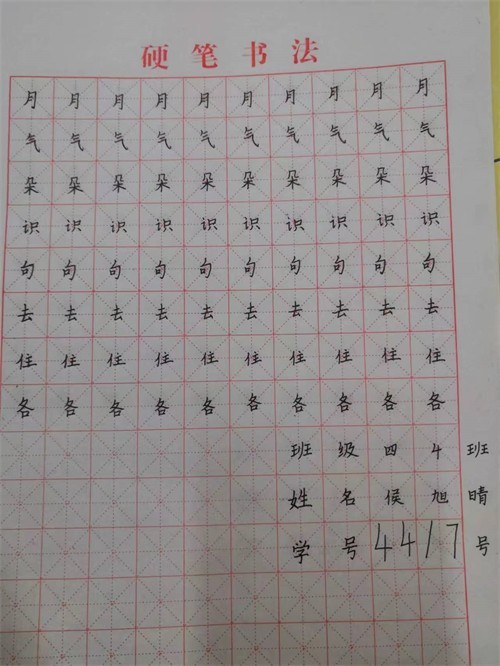 硬笔书法
月月月月月月月月月月
气气气气气气气气气气
朵朵朵朵朵朵朵朵朵朵
识识识识识识识识识识
句句句句句句句句句句
去去去去去去去去去去
住住住住住住住住住住
各各各各各各各各各各
班级四4班
姓名侯旭晴
学号4417号